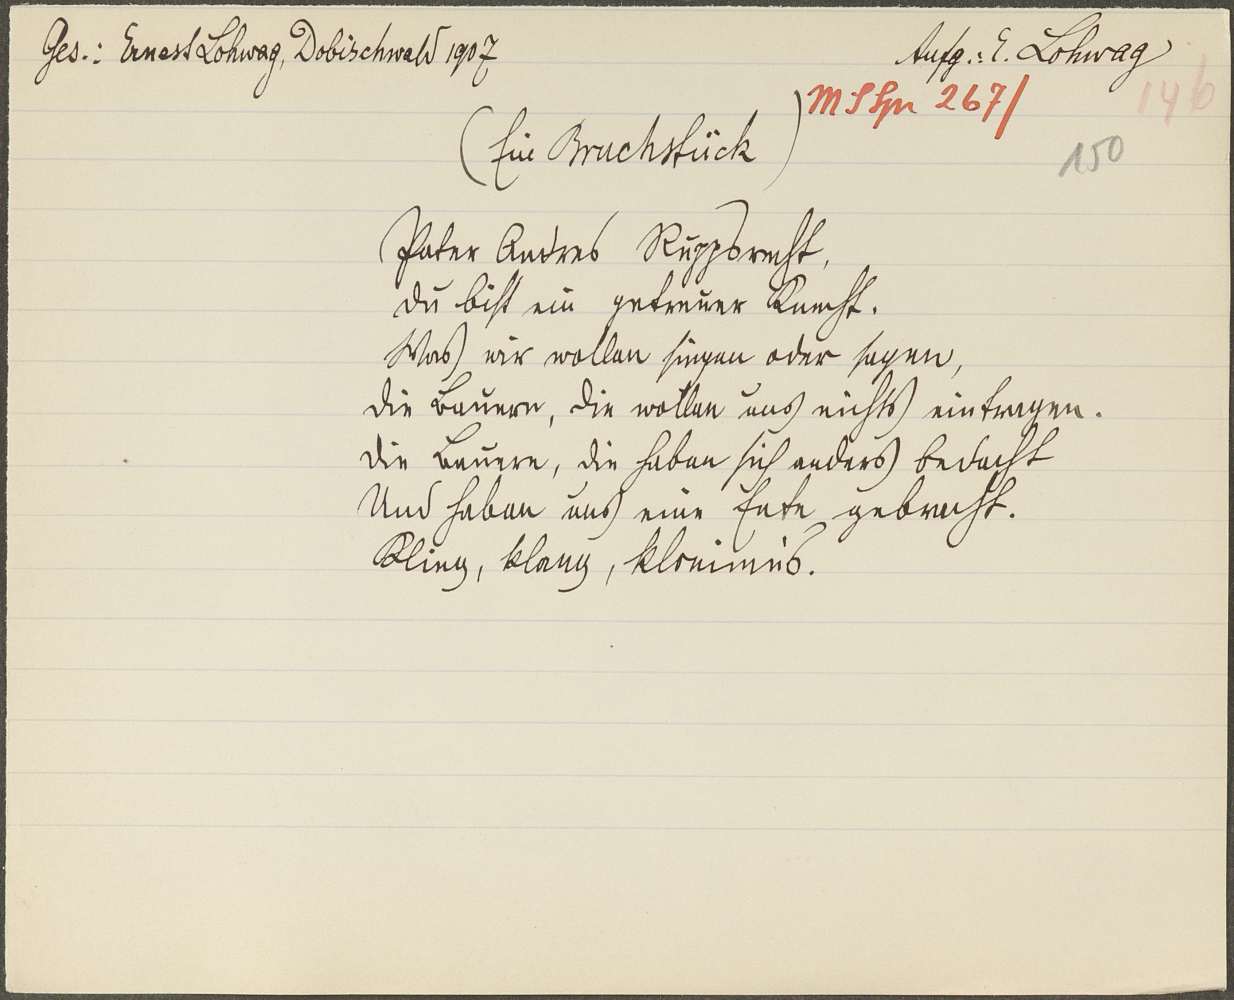 Ges.: Ernest Lohwag, Dobischwald 1907
Aufg.: E. Lohwag
MS Spr 267/
146
150
(Ein Bruchstück)
Pater Andres Ruppsrecht,
du bist ein getreuer Knecht.
Was wir wollen singen oder sagen,
die Bauern, die wollen uns nichts eintragen.
die Bauern, die haben sich anders bedacht
Und haben uns eine Ente gebracht.
Kling, klang,